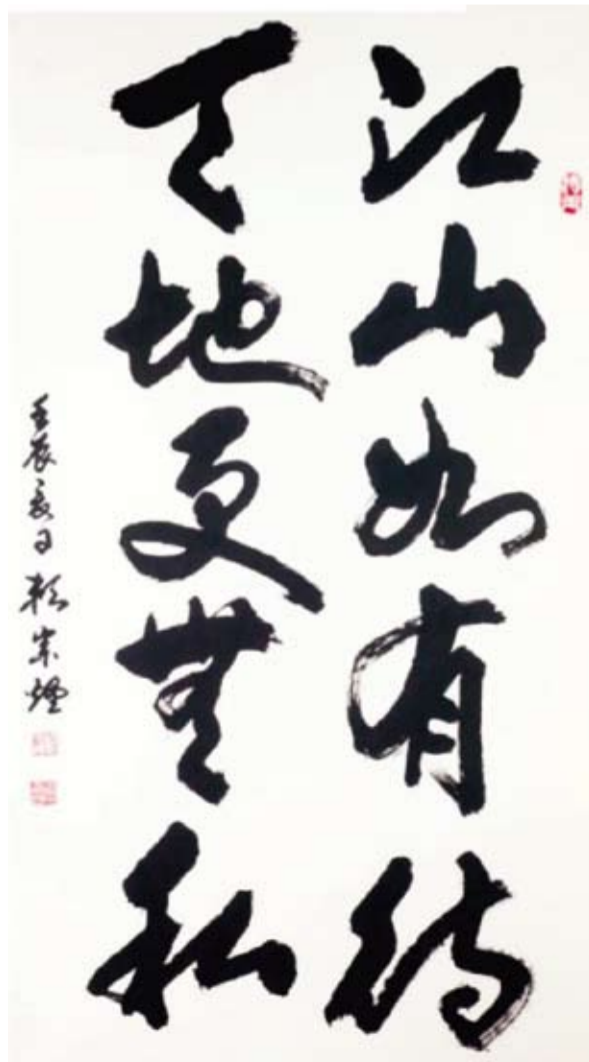 江山如有待
天地更無私
壬辰夏日